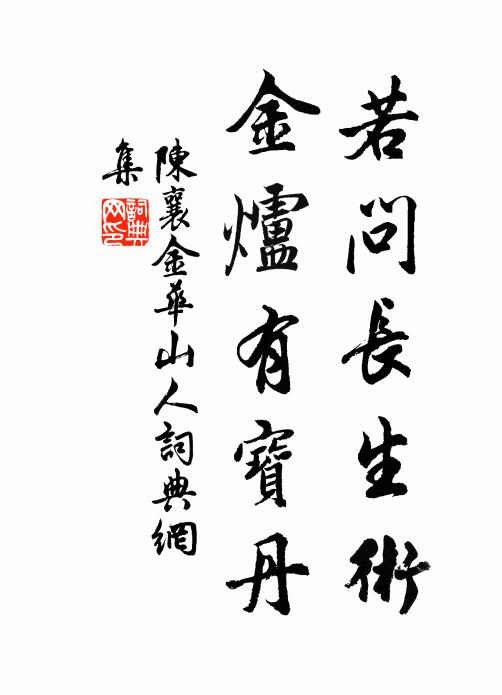 若問長生術
金爐有寶丹
陳襄金華山人詞典網
集
詞典
网印